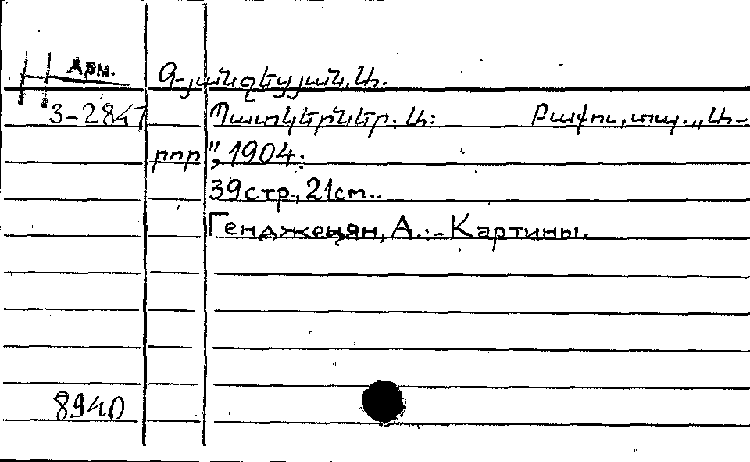 Арм.
3-2847
Պատկերներ. Ա: Բաքու, տպ. „Ա-
րոր”, 1904:
39 стр., 21 cm..
Генджецян, А. :- Картины.
8940